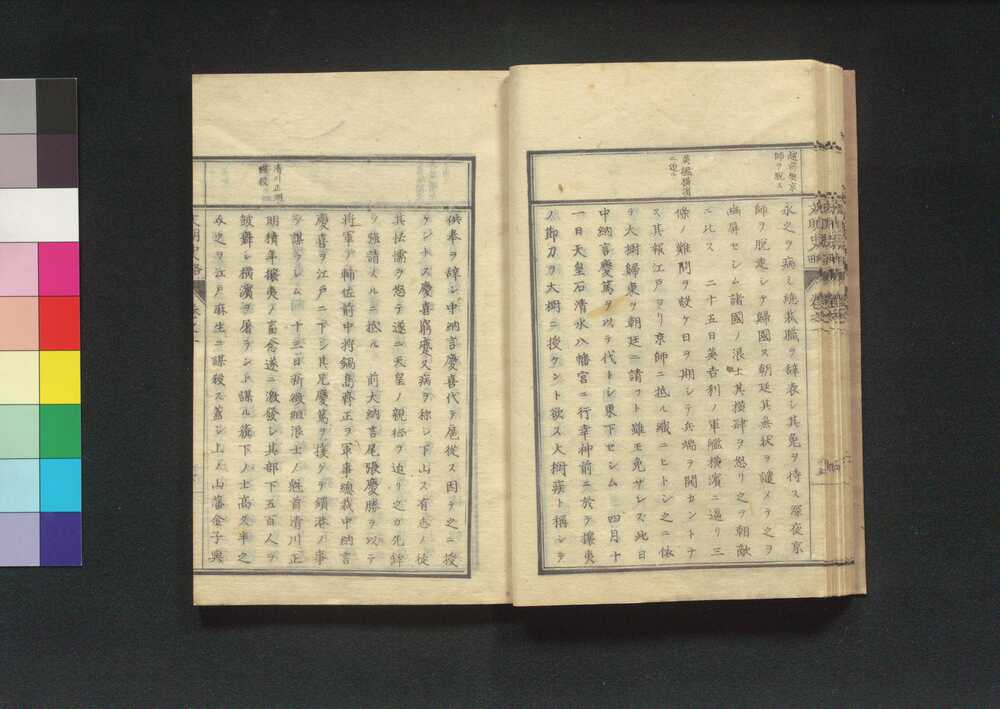 越前奥京
師ヲ脱ス
永之ヲ病ミ總裁職ヲ辞表シ其免ヲ待ス深夜京
師ヲ脱走シテ歸國ス朝廷其無状ヲ譴メテ之ヲ
幽屏セシム諸國ノ浪士其横肆ヲ怒リ之ヲ朝敵
ニ比ス 二十五日英吉利ノ軍艦横濱ニ逼リ三
條ノ難問ヲ設ケ日ヲ期シテ兵端ヲ開カントナ
ス其報江戸ヨリ京師ニ抵ル織ニヒトシ之ニ依
英艦横濱
ニ逼ル
テ大樹歸東ヲ朝廷ニ請フト雖モ免サレズ此日
中納言慶篤ヲ以テ代トシ東下セシム 四月十
一日天皇石清水八幡宮ニ行幸神前ニ於テ攘夷
ノ節刀ヲ大樹ニ授ケント欲ス大樹疾ト稱シテ
供奉ヲ辞シ中納言慶喜代テ扈從ス因テ之ニ授
ケントス慶喜窮蹙又病ヲ称シ下山ス有志ノ徒
其怯懦ヲ怒テ遂ニ天皇ノ親征ヲ迫リ之カ先鋒
ヲ強請スルニ抵ル 前大納言尾張慶勝ヲ以テ
將軍ノ輔佐前中将鍋島齊正ヲ軍事總裁中納言
慶喜ヲ江戸ニ下シ其兄慶篤ヲ援ケテ鎖港ノ事
ヲ謀ラシム 十三日新徴組浪士ノ魁首清川正
清川正明
横殺
明積年攘夷ノ畜念遂ニ激發シ其部下五百人ヲ
鼓舞シ横濱ヲ屠ラント謀ル旗下ノ士高久半之
ヲ江戸麻生ニ謀殺ス蓋シ上ノ山藩金子與